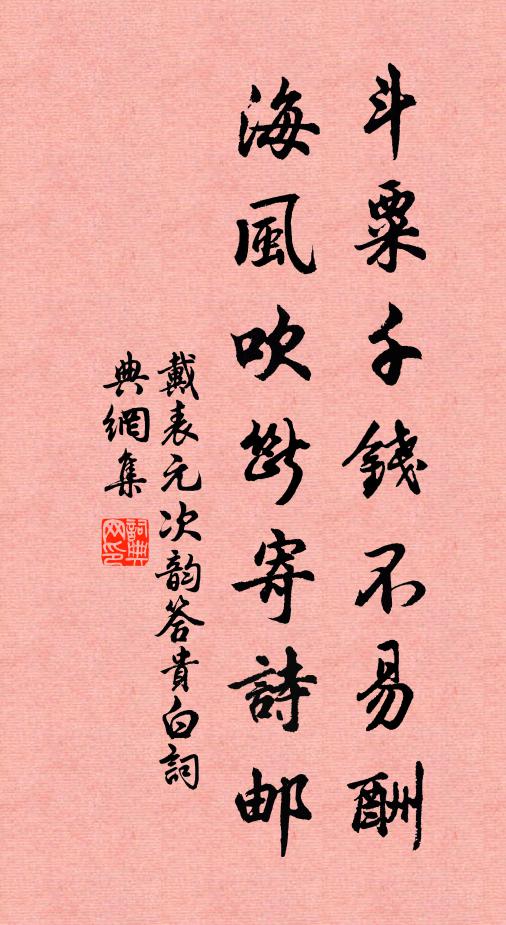 斗粟千錢不易酬
海風吹斷寄詩邮
戴表元次韵答貴白詞
典網集
詞典網印